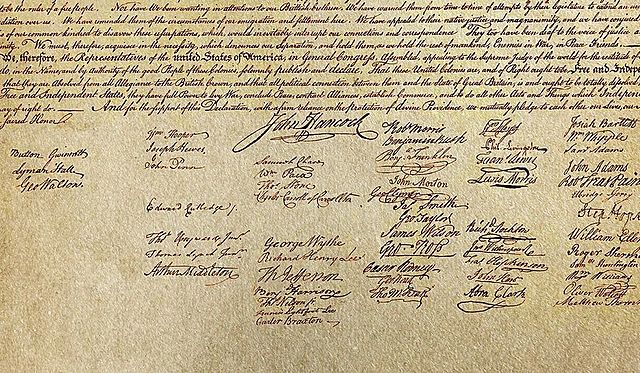 to be the ruler of a free people. Nor have We been wanting in attentions to our British brethren. We have warned them from time to time of attempts by their legislature to extend an
diction over us. We have reminded them of the circumstances of our emigration and settlement here. We have appealed to their native justice and magnanimity, and we have conjured
of our common kindred to disavow these usurpations, which, would inevitably interrupt our connections and correspondence. They too have been deaf to the voice of justice
We must, therefore, acquiesce in the necessity, which denounces our Separation, and hold them, as we hold the rest of mankind, Enemies in War, in Peace Friends.
We, therefore, the Representatives of the united States of America, in General Congress, Assembled, appealing to the Supreme Judge of the world for the rectitude of
do, in the Name, and by Authority of the good People of these Colonies, solemnly publish and declare, That these United Colonies are, and of Right ought to be Free and Indep
that they are Absolved from all Allegiance to the British Crown, and that all political connection between them and the State of Great Britain, is and ought to be totally
Free and Independent States, they have full Power to levy War, conclude Peace, contract Alliances, establish Commerce, and to do all other Acts and Things which Independ
of right do. And for the support of this Declaration, with a firm reliance on the protection of divine Providence, we mutually pledge to each other our Lives, our
Sacred Honor.
Button Gwinnett
Lyman Hall
Geo Walton.
Wm Hooper
Joseph Hewes,
John Penn
Edward Rutledge
Thos Heyward Junr
Thomas Lynch Junr
Arthur Middleton
John Hancock
Samuel Chase
Wm Paca
Thos Stone
Charles Carroll of Carrollton
George Wythe
Richard Henry Lee
Th Jefferson
Benj Harrison
Thos Nelson jr
Francis Lightfoot Lee
Carter Braxton
Robt Morris
Benjamin Rush
Benj Franklin
John Morton
Geo Clymer
Jas Smith
Geo Taylor
James Wilson
Geo Ross
Caesar Rodney
Geo Read
Tho M Kean
Wm Floyd
Phil Livingston
Fran Lewis
Lewis Morris
Richd Stockton
Jno Witherspoon
Fras Hopkinson
John Hart
Abra Clark
Josiah Bartlett
Wm Whipple
Saml Adams
John Adams
Robt Treat Paine
Elbridge Gerry
Step Hopk
William Elle
Roger Sherm
Saml Huntington
Wm Williams
Oliver Wolcott
Matthew Thorn